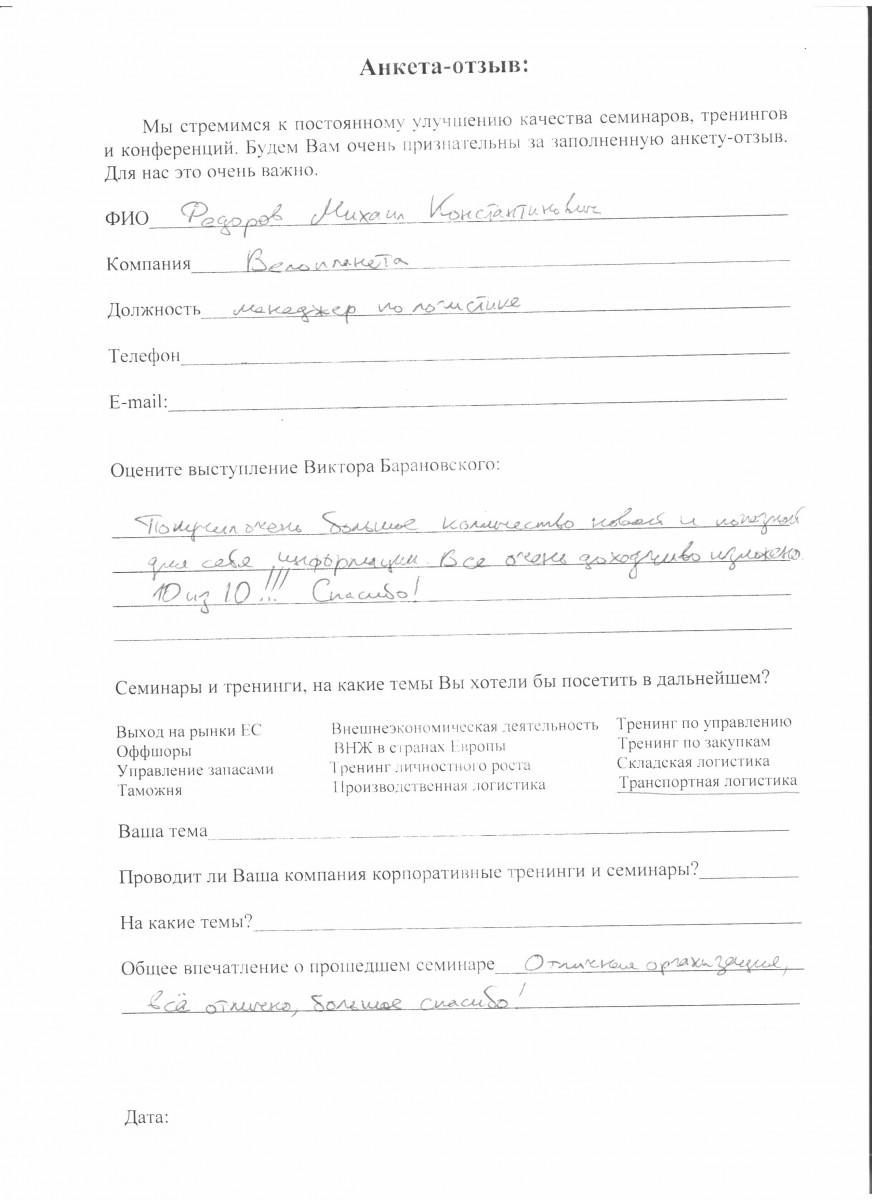 Анкета-отзыв:
Мы стремимся к постоянному улучшению качества семинаров, тренингов
и конференций. Будем Вам очень признательны за заполненную анкету-отзыв.
Для нас это очень важно.
ФИО Федоров Михаил Константинович
Компания Велопланета
Должность менеджер по логистике
Телефон
E-mail:
Оцените выступление Виктора Барановского:
Получил очень большое количество новой и полезной
для себя информации. Все очень доходчиво изложено
10 из 10!!! Спасибо!
Семинары и тренинги, на какие темы Вы хотели бы посетить в дальнейшем?
Выход на рынки ЕС Внешнеэкономическая деятельность Тренинг по управлению
Оффшоры ВНЖ в странах Европы Тренинг по закупкам
Управление запасами Тренинг личностного роста Складская логистика
Таможня Производственная логистика Транспортная логистика
Ваша тема
Проводит ли Ваша компания корпоративные тренинги и семинары?
На какие темы?
Общее впечатление о прошедшем семинаре Отличная организация,
всё отлично, большое спасибо!
Дата: